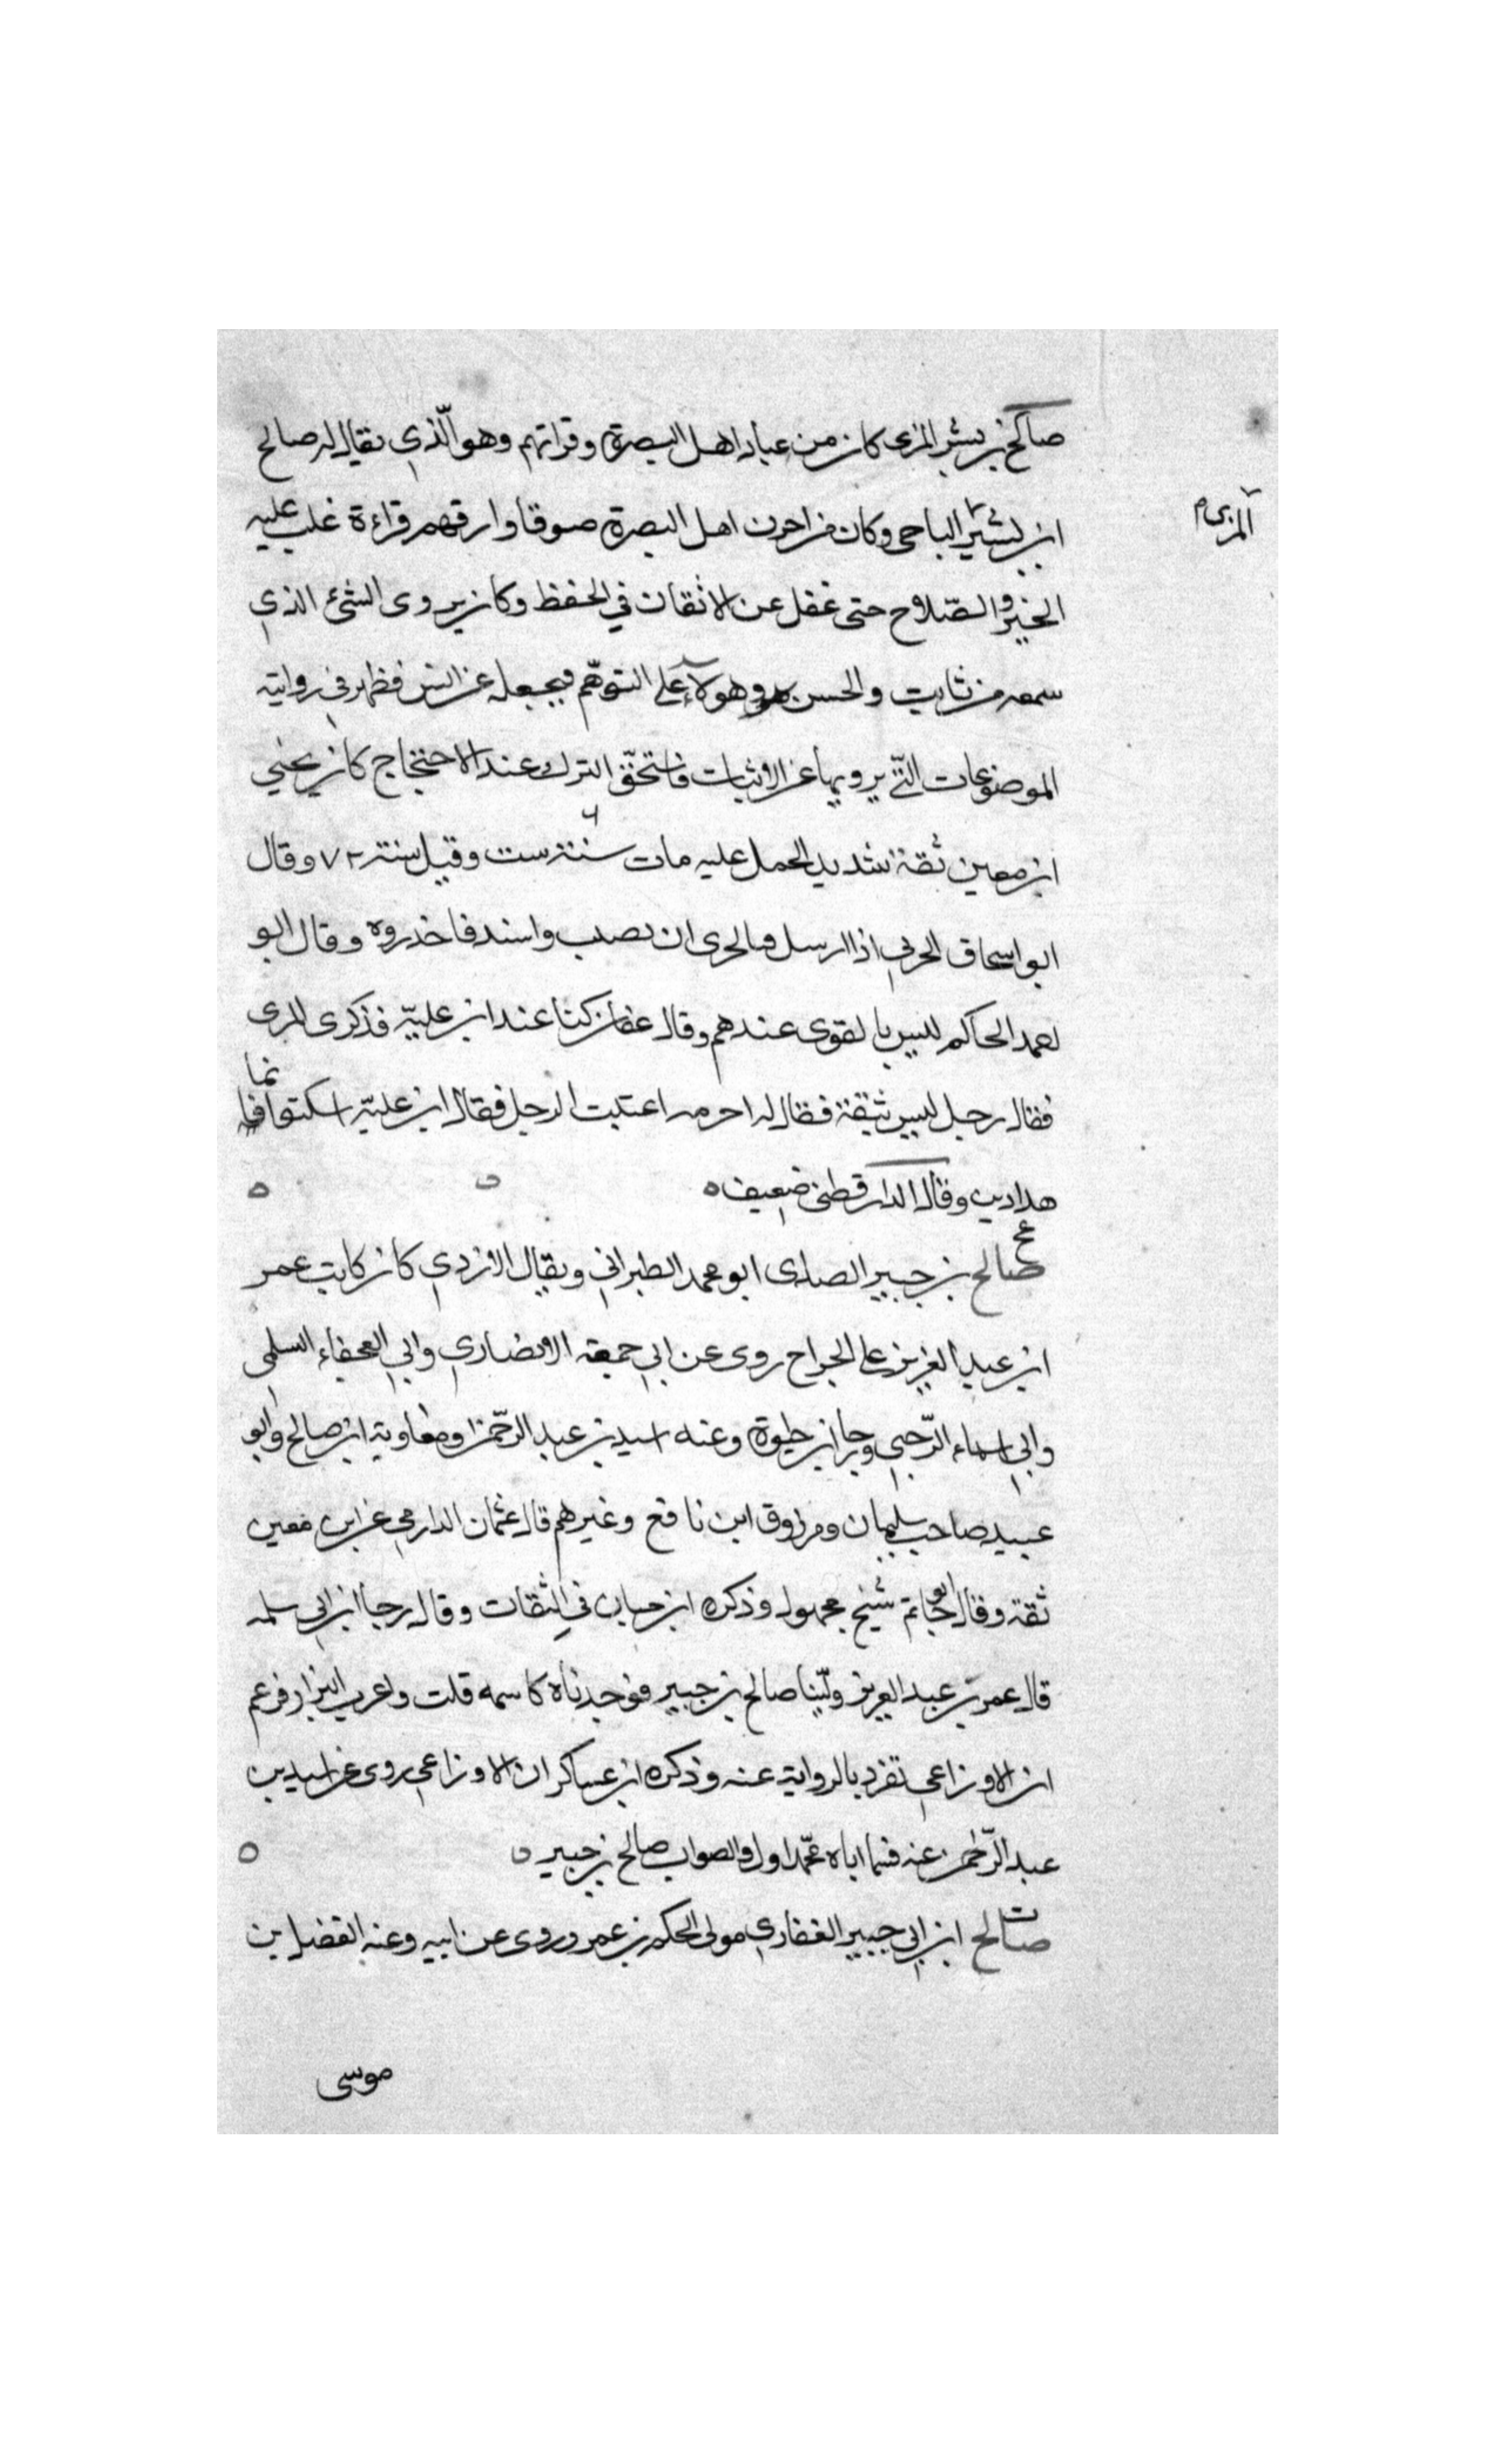 صالح بن بشير المزى كان من عباد اهل البصرة وقراتهم وهو الذي يقال له صالح
ابن بشير الباحى وكان من احزن اهل البصرة صوتا وارقهم قراءة غلب عليه
المرى م
الخير والصلاح حتى غفل عن الاتقان في الحفظ وكان يروى الشئ الذي
سمعه من ثابت والحسن وهولاء على التوهم فيجعله عن انس فظهر في روايته
الموضوعات التي يرويها عن الاثبات فاستحق الترك عند الاحتجاج كان يحيي
ابن معين ثقة شديد الحمل عليه مات سنة ست وقيل سنة ٧٢ وقال
ابو اسحاق الحربي اذا ارسل فبالحرى ان يصيب واسند فاحذروه وقال ابو
احمد الحاكم ليس بالقوى عندهم وقال عفان كنا عند ابن علية فذكر المرى
فقال رجل ليس بثقة فقال له اخر مه اغتبت الرجل فقال ابن علية اسكتوا فانما
هذا دين وقال الدارقطنى ضعيف ه
عخ
صالح بن جبير الصداى ابو محمد الطبراني ويقال الازدي كان كاتب عمر
ابن عبد العزيز على الخراج روى عن ابي جمعة الانصاري وابي العجفاء السلمي
وابي اسماء الرحبي ورجا ابن حيوة وعنه اسيد بن عبد الرحمن ومعاوية ابن صالح وابو
عبيد صاحب سليمان ومرزوق ابن نافع وغيرهم قال عثمان الدارمي عن ابن معين
ثقة وقال ابو حاتم شيخ مجهول وذكره ابن حبان في الثقات وقال رجا ابن ابي سلمه
قال عمر بن عبد العزيز ولينا صالح بن جبير فوجدناه كاسمه قلت واغرب البزار فزعم
ان الاوزاعي تفرد بالرواية عنه وذكره ابن عساكر ان الاوزاعي روى عن اسيد بن
عبد الرحمن عنه فسما اباه محمدا ول والصواب صالح بن جبير
صالح ابن ابي جبير الغفاري مولى الحكم بن عمرو روى عن ابيه وعنه الفضل بن
موسى